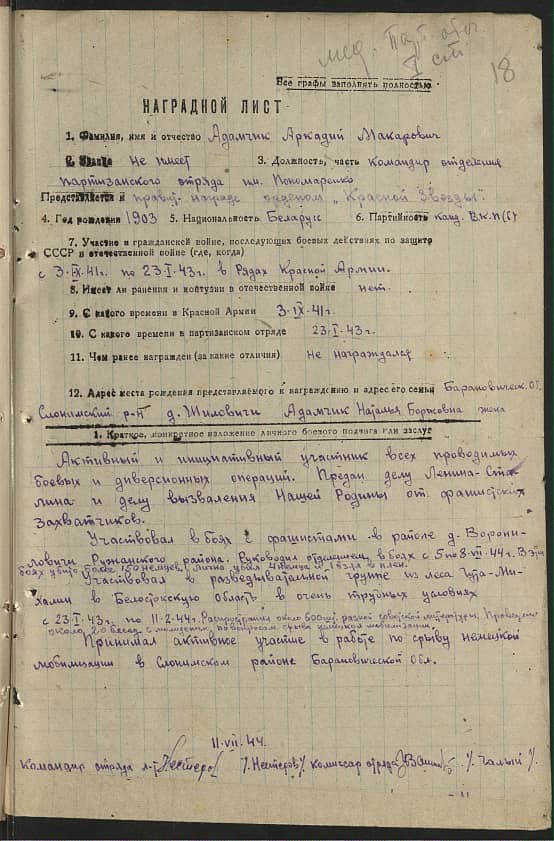 мед. Парт. отеч
I ст
18
Все графы заполнять полностью
НАГРАДНОЙ ЛИСТ
1. Фамилия, имя и отчество Адамчик Аркадий Макарович
2. Звание не имеет 3. Должность, часть командир отделения
партизанского отряда им. Пономаренко
Представляется к правит. награде орденом „Красной Звезды".
4. Год рождения 1903 5. Национальность Беларус 6. Партийность канд. ВКП(б)
7. Участие в гражданской войне, последующих боевых действиях по защите
СССР и отечественной войне (где, когда)
с 3.IX.41г. по 23.I.43г. в Рядах Красной Армии.
8. Имеет ли ранения и контузии в отечественной войне нет.
9. С какого времени в Красной Армии 3.IX-41г.
10. С какого времени в партизанском отряде 23.I.43г.
11. Чем ранее награжден (за какие отличия) не награждался
12. Адрес места рождения представляемого к награждению и адрес его семьи Барановическ. об.
Слонимский р-н д. Шиловичи Адамчик Наталья жена
1. Краткое, конкретное изложение личного боевого подвига или заслуг
Активный и инициативный участник всех проводимых
боевых и диверсионных операций. Предан делу Ленина-Ста-
лина и делу вызваления Нашей Родины от фашистских
захватчиков.
Участвовал в боях с фашистами в районе д. Ворони-
ловичи Ружанского района. Руководил отделением в боях с 5 по 8.VII.44г. В эти
боях убито более 150 немцев, лично убил 4 немца и 1 взял в плен.
Участвовал в разведывательной группе из леса Гута-Ми-
халин в Белостокскую область в очень трудных условиях
с 23.I.43г. по 11-2.44г. Распространил около 600шт. разной советской литературы. Проведено
около 20 бесед с населением, по вопросам срыва немецкой мобилизации.
Принимал активное участие в работе по срыву немецкой
мобилизации в Слонимском районе Барановической обл.
11.VII.44.
Командир отряда л-т /Нестеров/ комиссар отряда /Чалый/.